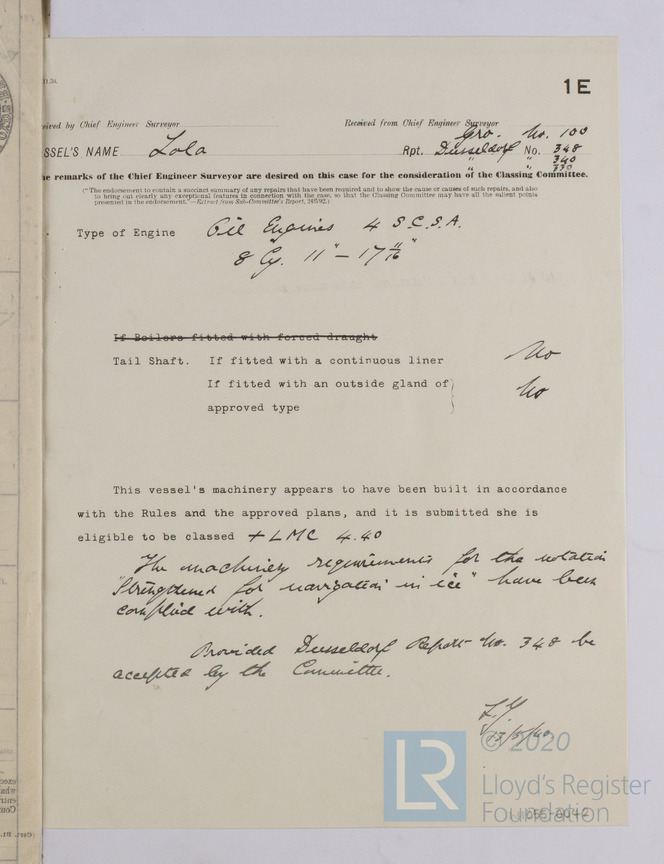 1 E
ceived by Chief Engineer Surveyor Received from Chief Engineer Surveyor
Gro. No. 100
SSEL'S NAME Lola Rpt. Dusseldorf No. 348
" " 340
" " 330
he remarks of the Chief Engineer Surveyor are desired on this case for the consideration of the Classing Committee.
("The endorsement to contain a succinct summary of any repairs that have been required and to show the cause or causes of such repairs, and also
to bring out clearly any exceptional features in connection with the case, so that the Classing Committee may have all the salient points
presented in the endorsement."—Extract from Sub-Committee's Report, 24/5/92.)
Type of Engine Oil Engines 4 S.C.S.A.
8 Cy. 11" – 17 11/16"
If Boilers fitted with forced draught
Tail Shaft. If fitted with a continuous liner No
If fitted with an outside gland of} No
approved type
This vessel's machinery appears to have been built in accordance
with the Rules and the approved plans, and it is submitted she is
eligible to be classed + LMC 4.40
The machinery requirements for the notation
"Strengthened for navigation in ice" have been
complied with.
Provided Dusseldorf Report No. 348 be
accepted by the Committee.
13/5/40
© 2020
LR
Lloyd's Register
Foundation